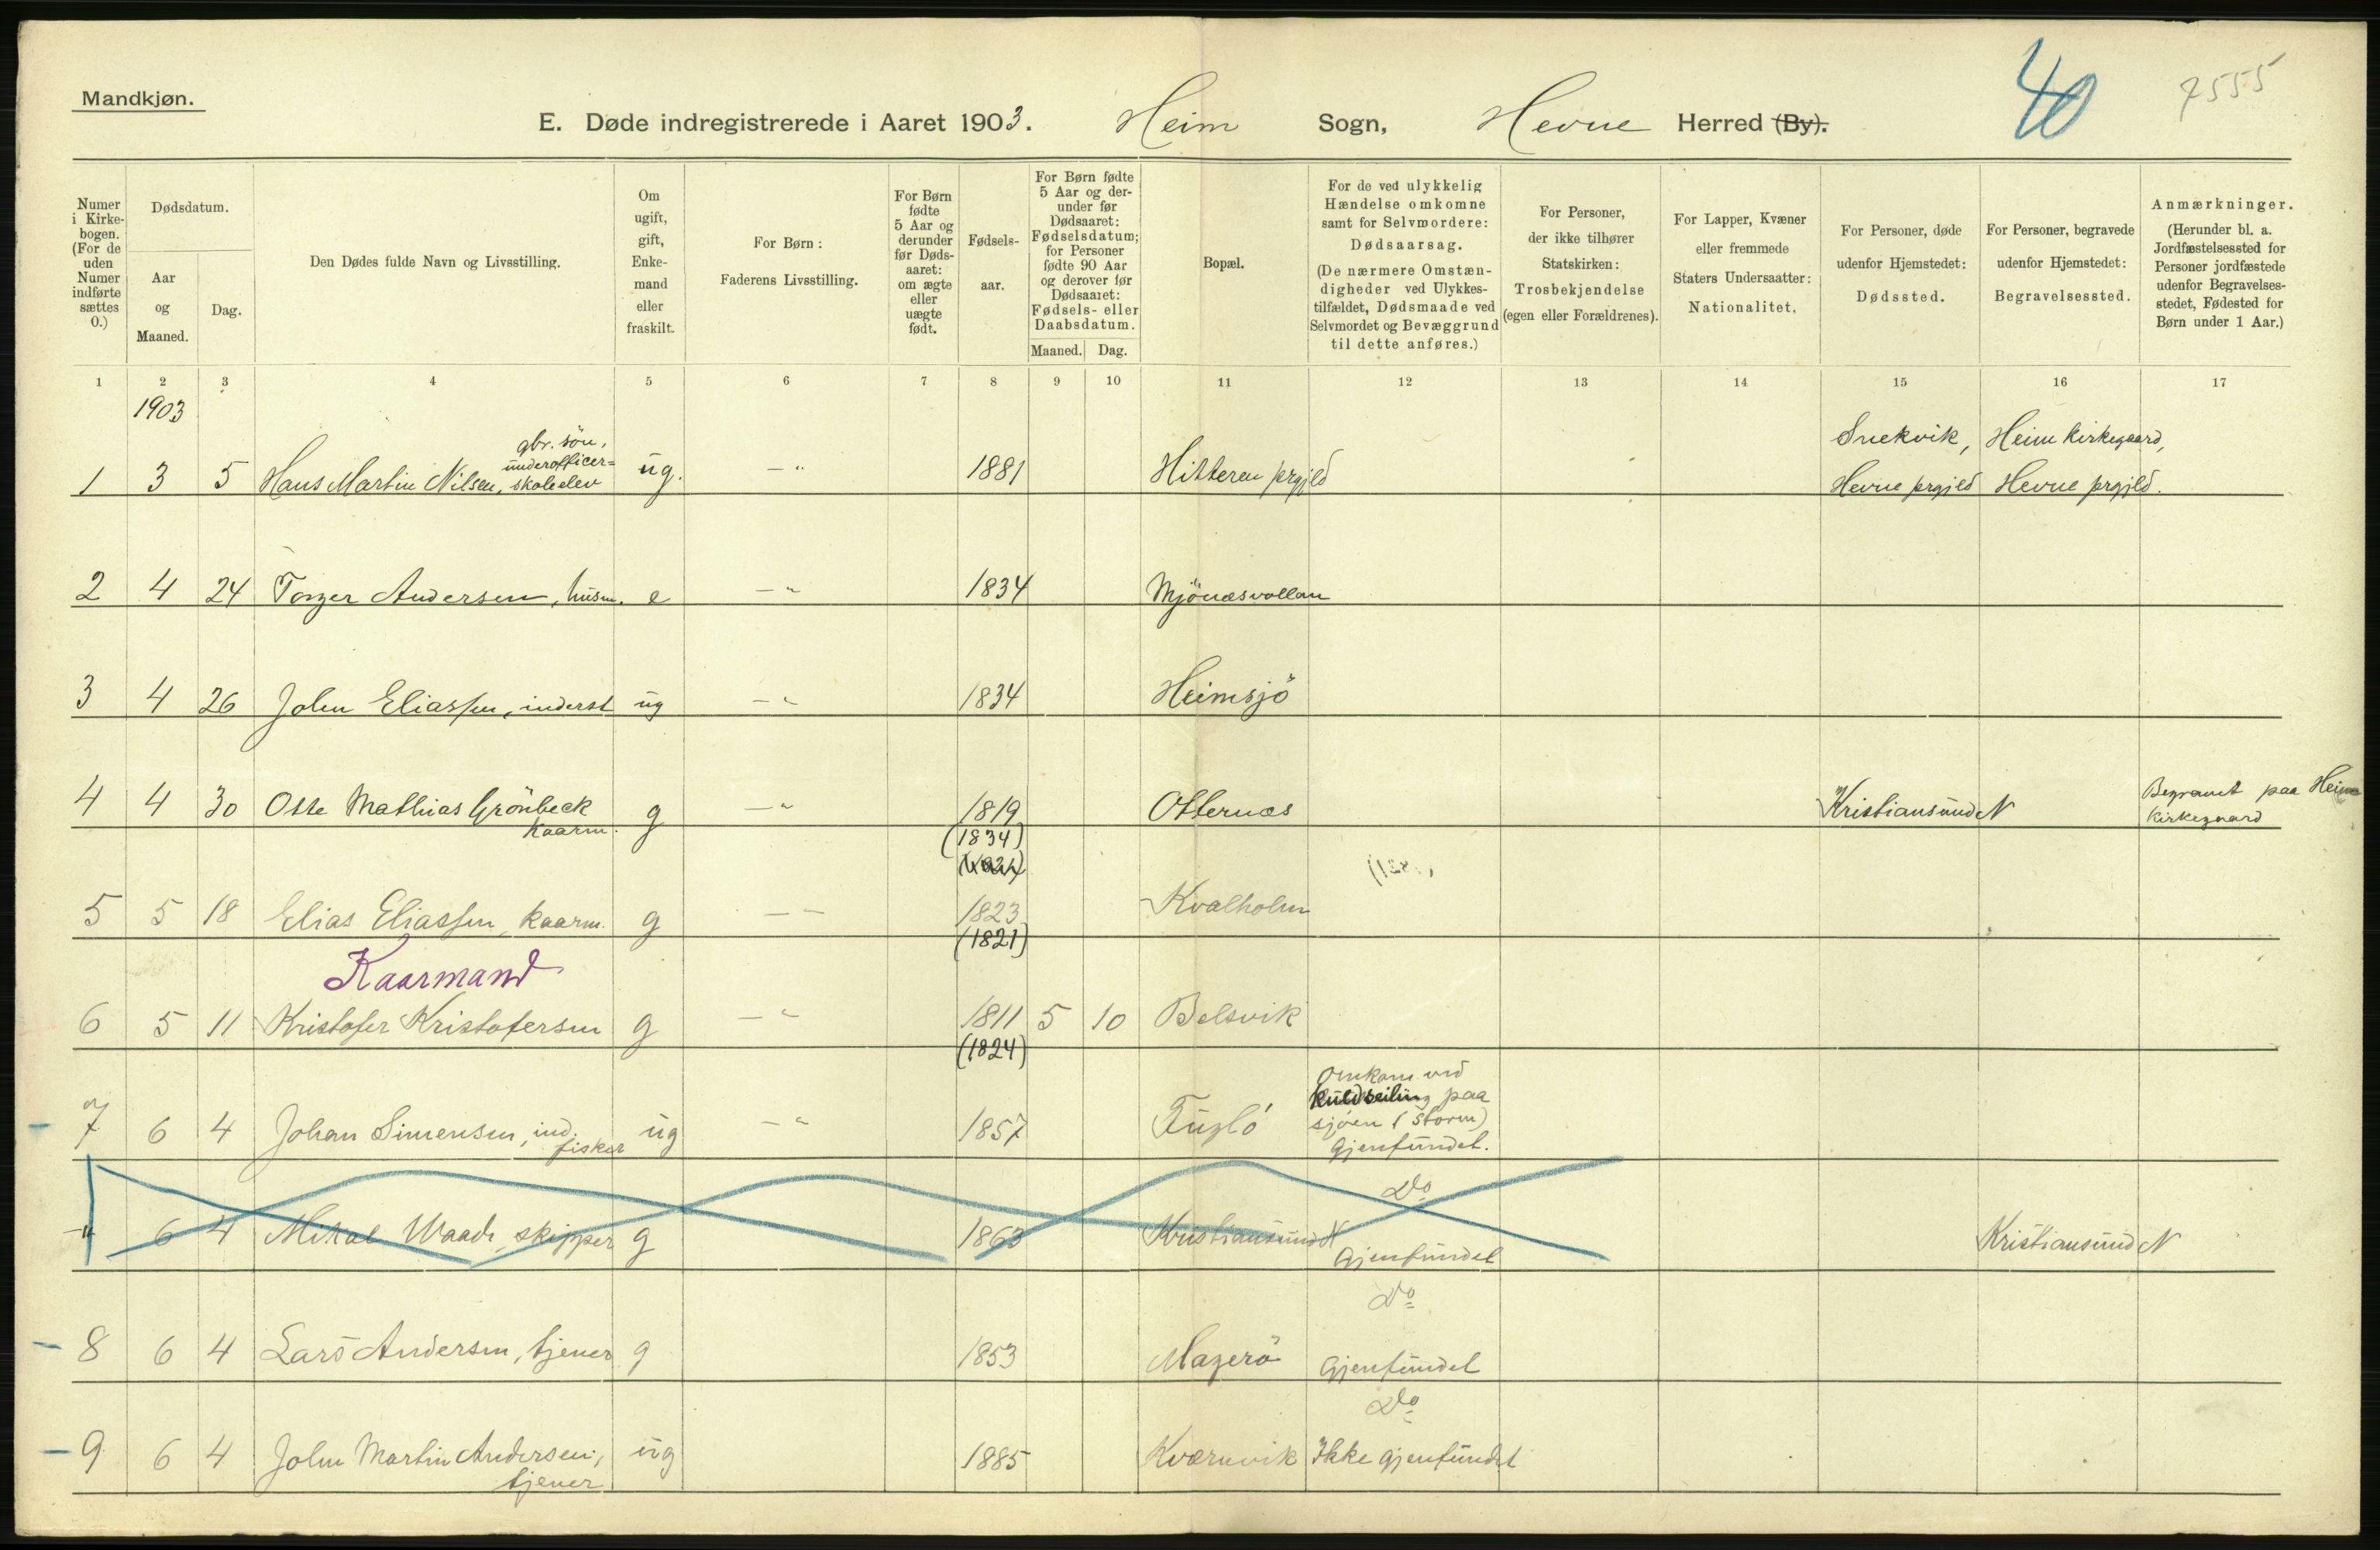 Mandkjøn.
E. Døde indregistrerede i Aaret 1903. Heim Sogn, Hevne Herred (By).
40
7555
Numer i Kirkebogen. (For de uden Numer indførte sættes 0.)
Dødsdatum.
Aar og Maaned.
Dag.
Den Dødes fulde Navn og Livsstilling.
Om ugift, gift, Enkemand eller fraskilt.
For Børn: Faderens Livsstilling.
For Børn fødte 5 Aar og derunder før Dødsaaret: om ægte eller uægte født.
Fødselsaar.
For Børn fødte 5 Aar og derunder før Dødsaaret: Fødselsdatum; for Personer fødte 90 Aar og derover før Dødsaaret: Fødsels- eller Daabsdatum.
Maaned. Dag.
Bopæl.
For de ved ulykkelig Hændelse omkomne samt for Selvmordere: Dødsaarsag. (De nærmere Omstændigheder ved Ulykkestilfældet, Dødsmaade ved Selvmordet og Bevæggrund til dette anføres.)
For Personer, der ikke tilhører Statskirken: Trosbekjendelse (egen eller Forældrenes).
For Lapper, Kvæner eller fremmede Staters Undersaatter: Nationalitet.
For Personer, døde udenfor Hjemstedet: Dødssted.
For Personer, begravede udenfor Hjemstedet: Begravelsessted.
Anmærkninger. (Herunder bl. a. Jordfæstelsessted for Personer jordfæstede udenfor Begravelsesstedet, Fødested for Børn under 1 Aar.)
1 2 3 4 5 6 7 8 9 10 11 12 13 14 15 16 17
1903
gbr. søn, underofficer=
1 3 5 Hans Martin Nilsen, skoleelev ug. -"- 1881 Hitteren prgjld Snekvik, Hevne prgjld Heim kirkegaard, Hevne prgjld.
2 4 24 Torger Andersen, husm. e -"- 1834 Mjönesvollan
3 4 26 John Eliassen, inderst ug -"- 1834 Heimsjö
4 4 30 Otte Mathias Grönbeck kaarm. g -"- 1819 (1834) Otternæs Kristiansund N Begravet paa Heim kirkegaard
5 5 18 Elias Eliassen, kaarm. g - - 1823 (1821) Kvalholm
Kaarmand
6 5 11 Kristofer Kristofersen g -"- 1811 (1824) 5 10 Belsvik
7 6 4 Johan Simensen, ind. fisker ug -"- 1857 Fuglö Omkom ved kuldseiling paa sjöen (storm) Gjenfundet.
" 6 4 Mikal Waade, skipper g 1863 Kristiansund N Do Gjenfundet Kristiansund N
8 6 4 Lars Andersen, tjener g 1853 Magerö Do Gjenfundet
9 6 4 John Martin Andersen, tjener ug 1885 Kværnvik Do Ikke gjenfundet